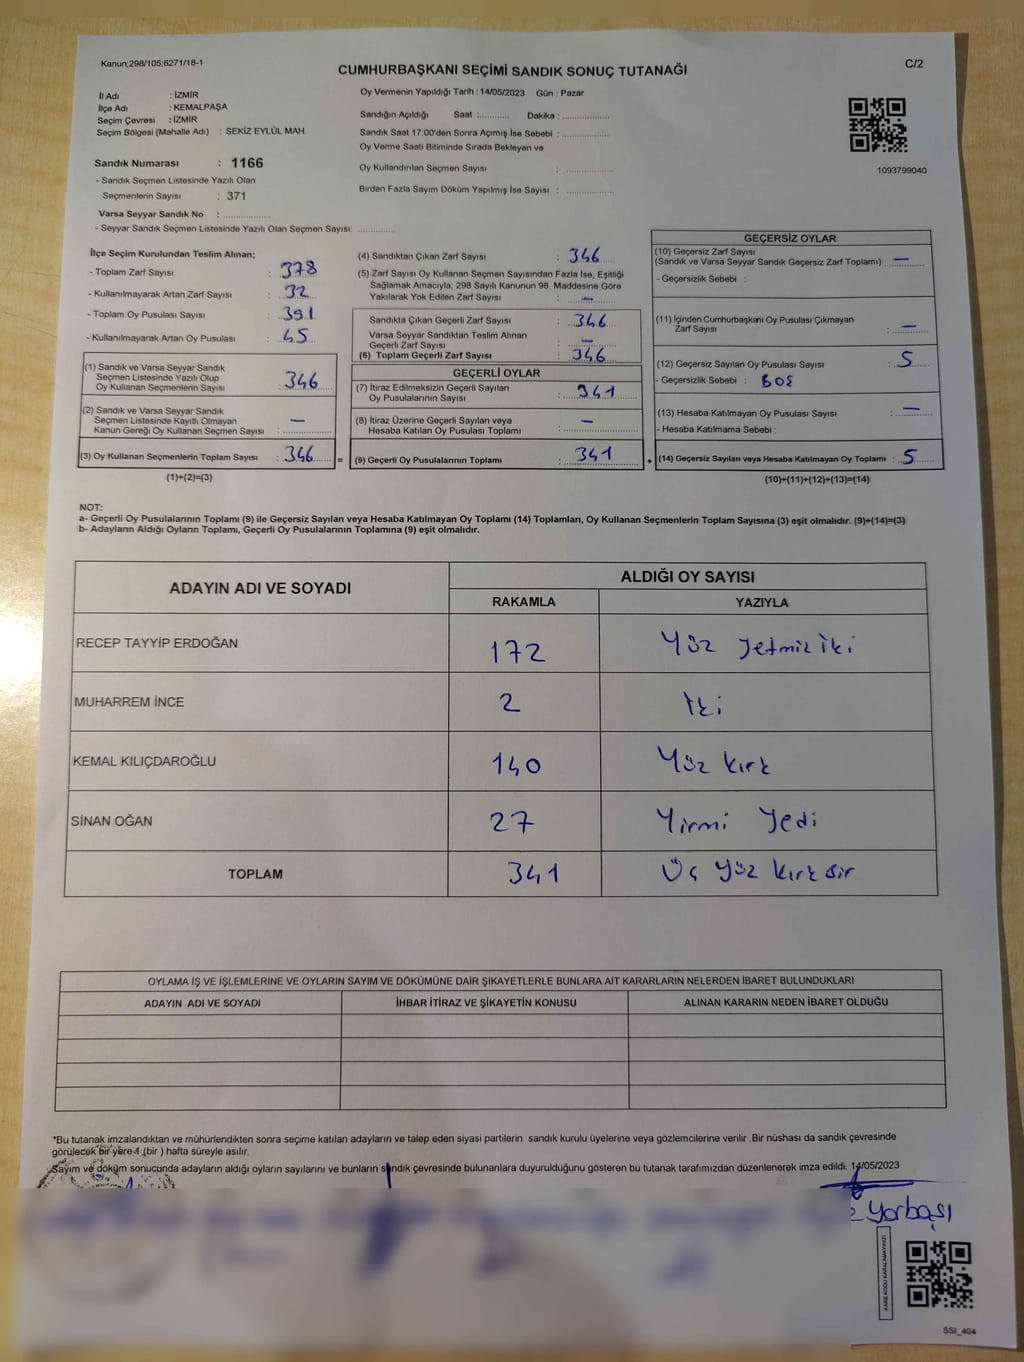 Kanun;298/105;6271/18-1
C/2
CUMHURBAŞKANI SEÇİMİ SANDIK SONUÇ TUTANAĞI
İl Adı : İZMİR
İlçe Adı : KEMALPAŞA
Seçim Çevresi : İZMİR
Seçim Bölgesi (Mahalle Adı) : SEKİZ EYLÜL MAH.
Sandık Numarası : 1166
- Sandık Seçmen Listesinde Yazılı Olan
Seçmenlerin Sayısı : 371
Varsa Seyyar Sandık No : ..............
- Seyyar Sandık Seçmen Listesinde Yazılı Olan Seçmen Sayısı: ............
Oy Vermenin Yapıldığı Tarih : 14/05/2023 Gün : Pazar
Sandığın Açıldığı Saat :.......... Dakika : ..............
Sandık Saat 17:00'den Sonra Açımış İse Sebebi : ..............
Oy Verme Saati Bitiminde Sırada Bekleyen ve
Oy Kullandırılan Seçmen Sayısı : ..............
Birden Fazla Sayım Döküm Yapılmış İse Sayısı : ..............
1093799040
İlçe Seçim Kurulundan Teslim Alınan;
- Toplam Zarf Sayısı : 378
- Kullanılmayarak Artan Zarf Sayısı : 32
- Toplam Oy Pusulası Sayısı : 391
- Kullanılmayarak Artan Oy Pusulası : 45
(1) Sandık ve Varsa Seyyar Sandık
Seçmen Listesinde Yazılı Olup
Oy Kullanan Seçmenlerin Sayısı : 346
(2) Sandık ve Varsa Seyyar Sandık
Seçmen Listesinde Kayıtlı Olmayan
Kanun Gereği Oy Kullanan Seçmen Sayısı : —
(3) Oy Kullanan Seçmenlerin Toplam Sayısı : 346 =
(1)+(2)=(3)
(4) Sandıktan Çıkan Zarf Sayısı : 346
(5) Zarf Sayısı Oy Kullanan Seçmen Sayısından Fazla İse, Eşitliği
Sağlamak Amacıyla; 298 Sayılı Kanunun 98. Maddesine Göre
Yakılarak Yok Edilen Zarf Sayısı : —
Sandıkta Çıkan Geçerli Zarf Sayısı : 346
Varsa Seyyar Sandıktan Teslim Alınan
Geçerli Zarf Sayısı : —
(6) Toplam Geçerli Zarf Sayısı : 346
GEÇERLİ OYLAR
(7) İtiraz Edilmeksizin Geçerli Sayılan
Oy Pusulalarının Sayısı : 341
(8) İtiraz Üzerine Geçerli Sayılan veya
Hesaba Katılan Oy Pusulası Toplamı : —
(9) Geçerli Oy Pusulalarının Toplamı : 341 +
GEÇERSİZ OYLAR
(10) Geçersiz Zarf Sayısı
(Sandık ve Varsa Seyyar Sandık Geçersiz Zarf Toplamı) : —
- Geçersizlik Sebebi :
(11) İçinden Cumhurbaşkanı Oy Pusulası Çıkmayan
Zarf Sayısı : —
(12) Geçersiz Sayılan Oy Pusulası Sayısı : 5
- Geçersizlik Sebebi : BOŞ
(13) Hesaba Katılmayan Oy Pusulası Sayısı : —
- Hesaba Katılmama Sebebi :
(14) Geçersiz Sayılan veya Hesaba Katılmayan Oy Toplamı : 5
(10)+(11)+(12)+(13)=(14)
NOT:
a- Geçerli Oy Pusulalarının Toplamı (9) ile Geçersiz Sayılan veya Hesaba Katılmayan Oy Toplamı (14) Toplamları, Oy Kullanan Seçmenlerin Toplam Sayısına (3) eşit olmalıdır. (9)+(14)=(3)
b- Adayların Aldığı Oyların Toplamı, Geçerli Oy Pusulalarının Toplamına (9) eşit olmalıdır.
ADAYIN ADI VE SOYADI
ALDIĞI OY SAYISI
RAKAMLA YAZIYLA
RECEP TAYYİP ERDOĞAN 172 Yüz Yetmiş İki
MUHARREM İNCE 2 İki
KEMAL KILIÇDAROĞLU 140 Yüz Kırk
SİNAN OĞAN 27 Yirmi Yedi
TOPLAM 341 Üç Yüz Kırk Bir
OYLAMA İŞ VE İŞLEMLERİNE VE OYLARIN SAYIM VE DÖKÜMÜNE DAİR ŞİKAYETLERLE BUNLARA AİT KARARLARIN NELERDEN İBARET BULUNDUKLARI
ADAYIN ADI VE SOYADI İHBAR İTİRAZ VE ŞİKAYETİN KONUSU ALINAN KARARIN NEDEN İBARET OLDUĞU
*Bu tutanak imzalandıktan ve mühürlendikten sonra seçime katılan adayların ve talep eden siyasi partilerin sandık kurulu üyelerine veya gözlemcilerine verilir .Bir nüshası da sandık çevresinde
görülecek bir yere 1 (bir ) hafta süreyle asılır.
Sayım ve döküm sonucunda adayların aldığı oyların sayılarını ve bunların sandık çevresinde bulunanlara duyurulduğunu gösteren bu tutanak tarafımızdan düzenlenerek imza edildi. 14/05/2023
Yorbaşı
KARE KODU KARALAMAYINIZ!
SSI_404